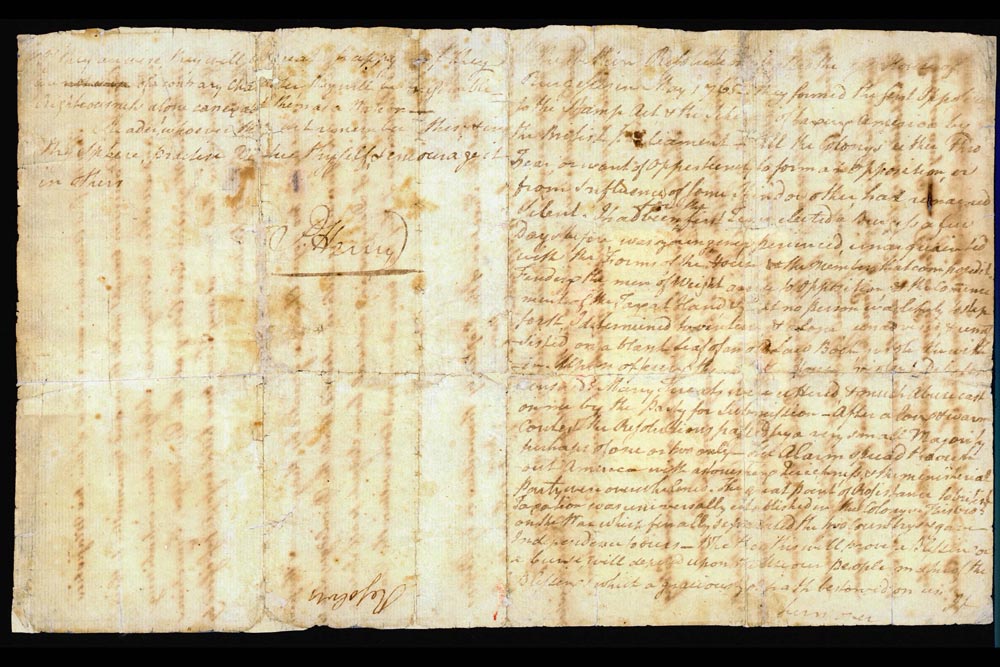 The within Resolutions passed the House of
Burgesses in May 1765. They formed the first Opposition
to the Stamp Act & the Scheme of taxing America by
the British Parliament. All the Colonys, either thro
Fear, or want of Oppertunity to form an Opposition, or
from Influence of some Kind or other, had remained
silent. I had been for the first Time elected a Burgess a few
Days before, was young, inexperienced, unacquainted
with the Forms of the House & the Members that composed it.
Finding the men of Weight averse to Opposition, & the Commence
ment of the Tax at Hand & that no person was likely to step
forth, I determined to venture, & alone, unadvised & unas
sisted on a blank Leaf of an old Law Book wrote the within
ensued. Many Threats were uttered & much Abuse cast
on me by the Party for Submission – After a long & warm
Contest the Resolutions passed by a very small Majority
perhaps of one or two only – The Alarm spread through
out America with astonishing Quickness, & the ministerial
Party were overwhelmed. The great point of Resistance to British
Taxation was universally established in the Colonys. This bro't
on the War which finally separated the two Countrys & gave
Independence to ours – Whether this will prove a Blessing or
a Curse will depend upon the Use our people make of the
Blessings which a gracious God hath bestowed on us. If
they are wise, they will be great & happy. If they
are of a contrary Character, they will be miserable –
Righteousness alone can exalt them as a Nation –
Reader! whoever thou art, remember this, & in
thy Sphere, practice Virtue thyself, & encourage it
in others
P. Henry